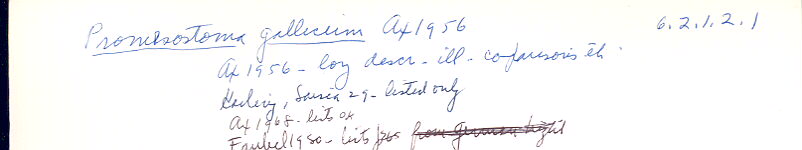 Promesostoma gallicum Ax 1956 6.2.1.2.1
Ax 1956 - long descr - ill - comparisons etc.
Karling, 29 - listed only
Ax 1968 - lists
Faubel 1980 - lists from German